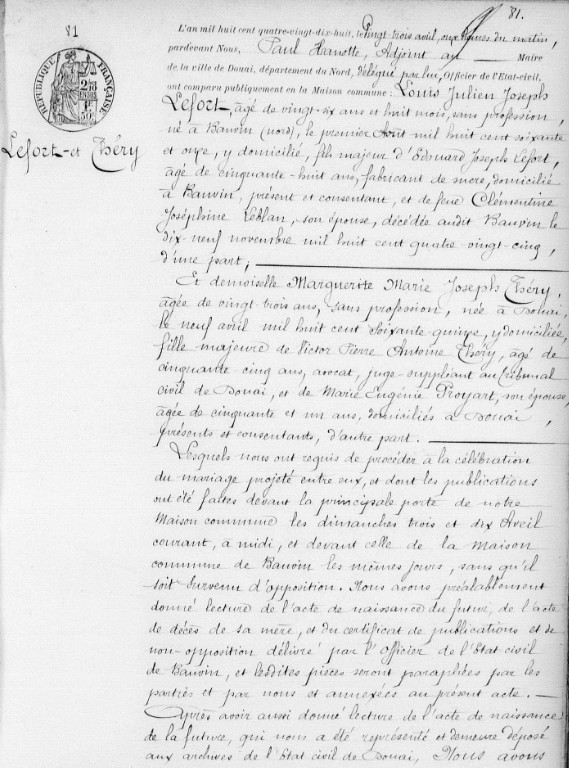 81.
81
RÉPUBLIQUE FRANÇAISE
Lefort et Théry
L'an mil huit cent quatre-vingt-dix-huit, le vingt trois avril, onze heures du matin,
pardevant Nous, Paul Hanotte, Adjoint au Maire
de la ville de Douai, département du Nord, délégué par lui, Officier de l'Etat-civil,
ont comparu publiquement en la Maison commune : Louis Julien Joseph
Lefort, âgé de vingt-six ans et huit mois, sans profession,
né à Bauvin (Nord), le premier Août mil huit cent soixante
et onze, y domicilié, fils majeur d'Edouard Joseph Lefort,
âgé de cinquante-huit ans, fabricant de sucre, domicilié
à Bauvin, présent et consentant, et de feue Clémentine
Joséphine Leblan, son épouse, décédée audit Bauvin le
dix-neuf novembre mil huit cent quatre-vingt-cinq,
d'une part ;
Et demoiselle Marguerite Marie Joseph Théry,
âgée de vingt-trois ans, sans profession, née à Douai,
le neuf avril mil huit cent soixante quinze, y domiciliée,
fille majeure de Victor Pierre Antoine Théry, âgé de
cinquante cinq ans, avocat, juge-suppléant au Tribunal
civil de Douai, et de Marie Eugénie Proyart, son épouse,
âgée de cinquante et un ans, domiciliés à Douai,
présents et consentants, d'autre part.
Lesquels nous ont requis de procéder à la célébration
du mariage projeté entre eux, et dont les publications
ont été faites devant la principale porte de notre
Maison commune les dimanches trois et dix Avril
courant, à midi, et devant celle de la maison
commune de Bauvin les mêmes jours, sans qu'il
soit survenu d'opposition. Nous avons préalablement
donné lecture de l'acte de naissance du futur, de l'acte
de décès de sa mère, et du certificat de publications et de
non-opposition délivré par l'Officier de l'Etat civil
de Bauvin, et lesdites pièces seront paraphées par les
parties et par nous et annexées au présent acte.
Après avoir aussi donné lecture de l'acte de naissance
de la future, qui nous a été représenté et demeure déposé
aux archives de l'Etat civil de Douai, Nous avons